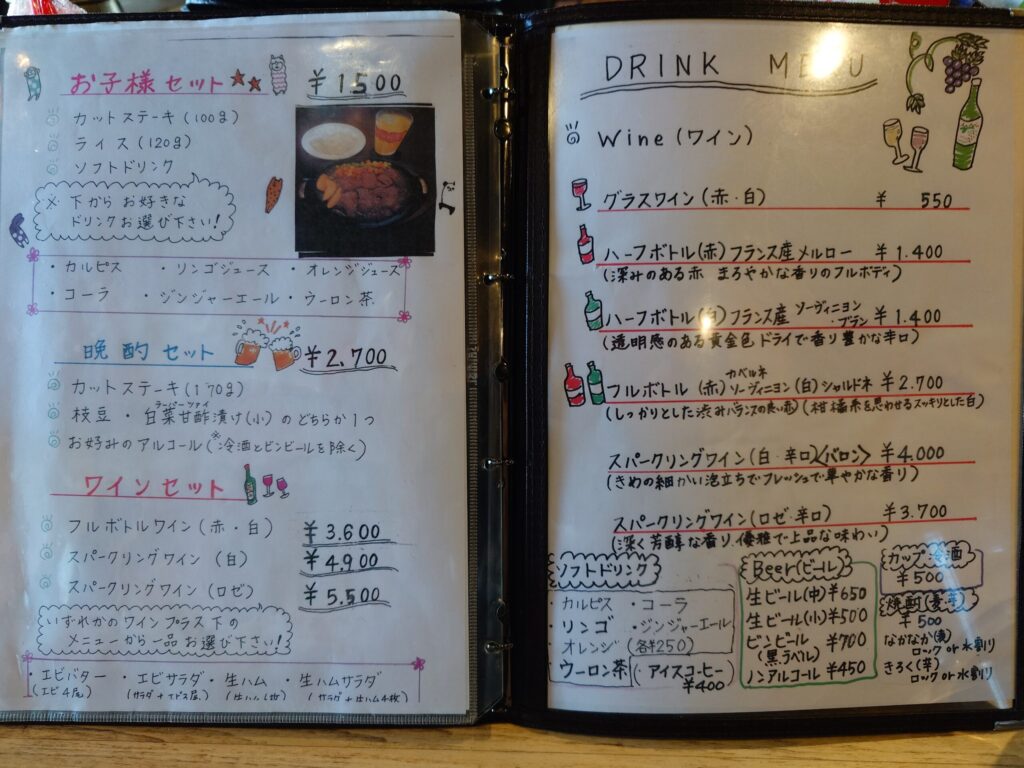 お子様セット ¥1,500
カットステーキ(100g)
ライス(120g)
ソフトドリンク
※ 下から お好きな
ドリンクお選び下さい!
・カルピス ・リンゴジュース ・オレンジジュース
・コーラ ・ジンジャーエール ・ウーロン茶
晩酌セット ¥2,700
カットステーキ(170g)
ラーパーツァイ
枝豆・白菜甘酢漬け(小)のどちらか1つ
お好みのアルコール(※冷酒とビンビールを除く)
ワインセット
フルボトルワイン(赤・白) ¥3,600
スパークリングワイン (白) ¥4,900
スパークリングワイン (ロゼ) ¥5,500
いずれかのワインプラス下の
メニューから一品お選び下さい!
・エビバター ・エビサラダ ・生ハム ・生ハムサラダ
(エビ4尾) (サラダ+エビ3尾) (サラダ+生ハム4枚)
DRINK MENU
Wine(ワイン)
グラスワイン(赤・白) ¥ 550
ハーフボトル(赤)フランス産メルロー ¥1,400
(深みのある赤 まろやかな香りのフルボディ)
ハーフボトル(白)フランス産 ソーヴィニヨン・ブラン ¥1,400
(透明感のある黄金色 ドライで香り豊かな辛口)
フルボトル (赤)カベルネソーヴィニヨン(白)シャルドネ ¥2,700
(しっかりとした渋みバランスの良い赤)(柑橘系を思わせるスッキリとした白)
スパークリングワイン(白・辛口)〈バロン〉 ¥4,000
(きめの細かい泡立ちでフレッシュで華やかな香り)
スパークリングワイン(ロゼ・辛口) ¥3,700
(深く芳醇な香り、優雅で上品な味わい)
ソフトドリンク
・カルピス ・コーラ
・リンゴ ・ジンジャーエール
オレンジ (各¥250)
ウーロン茶 ・アイスコーヒー
¥400
Beer(ビール)
生ビール(中) ¥650
生ビール(小) ¥500
ビンビール ¥700
(黒ラベル)
ノンアルコール ¥450
カップ冷酒
¥500
焼酎(麦・芋)
¥500
なかなか(麦)
ロック or 水割り
きろく(芋)
ロック or 水割り